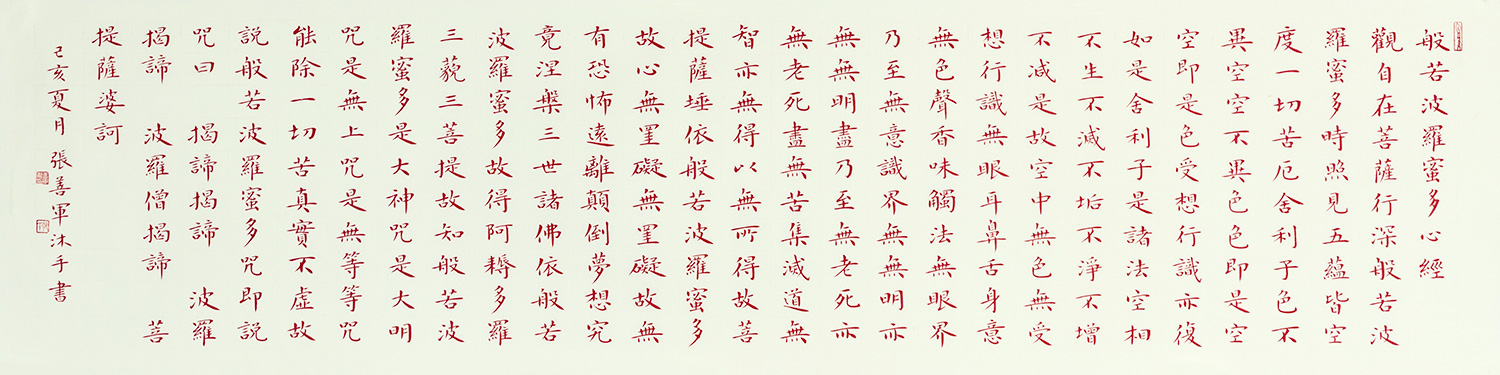 般若波羅蜜多心經
觀自在菩薩行深般若波
羅蜜多時照見五蘊皆空
度一切苦厄舍利子色不
異空空不異色色即是空
空即是色受想行識亦復
如是舍利子是諸法空相
不生不滅不垢不淨不增
不減是故空中無色無受
想行識無眼耳鼻舌身意
無色聲香味觸法無眼界
乃至無意識界無無明亦
無無明盡乃至無老死亦
無老死盡無苦集滅道無
智亦無得以無所得故菩
提薩埵依般若波羅蜜多
故心無罣礙無罣礙故無
有恐怖遠離顛倒夢想究
竟涅槃三世諸佛依般若
波羅蜜多故得阿耨多羅
三藐三菩提故知般若波
羅蜜多是大神咒是大明
咒是無上咒是無等等咒
能除一切苦真實不虛故
説般若波羅蜜多咒即説
咒曰 揭諦揭諦 波羅
揭諦 波羅僧揭諦 菩
提薩婆訶
己亥夏月張善軍沐手書